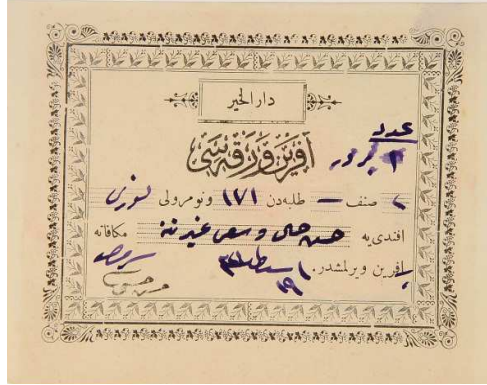 دار الخير
آفرين ورقه سی
عدد
١
٢ صنف — طلبه‌دن ١٧١ ونومرولى نوری
افندی‌یه حسن حال و سعی غیرتنه مكافاتة
بر آفرين ويرلمشدر.